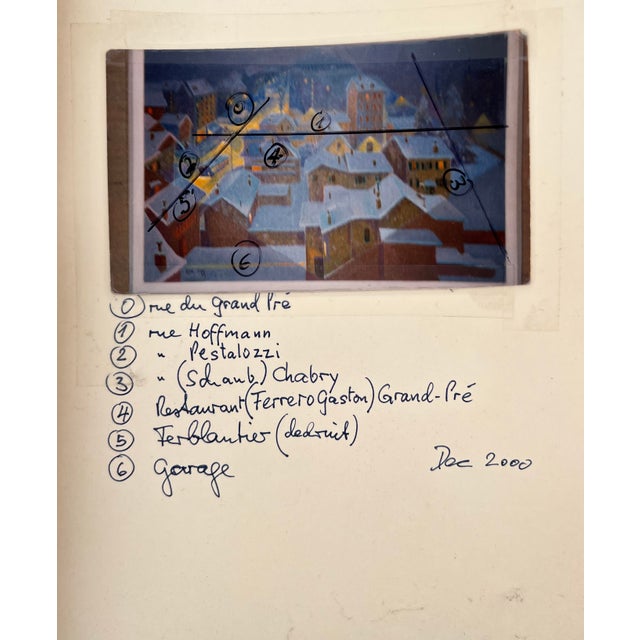 0 1 2 4 5 3 6
0 rue du Grand Pré
1 rue Hoffmann
2 " Pestalozzi
3 " (Schaub.) Chabry
4 Restaurant (Ferrero Gaston) Grand-Pré
5 Ferblantier (dedruit)
6 Garage
Dec 2000